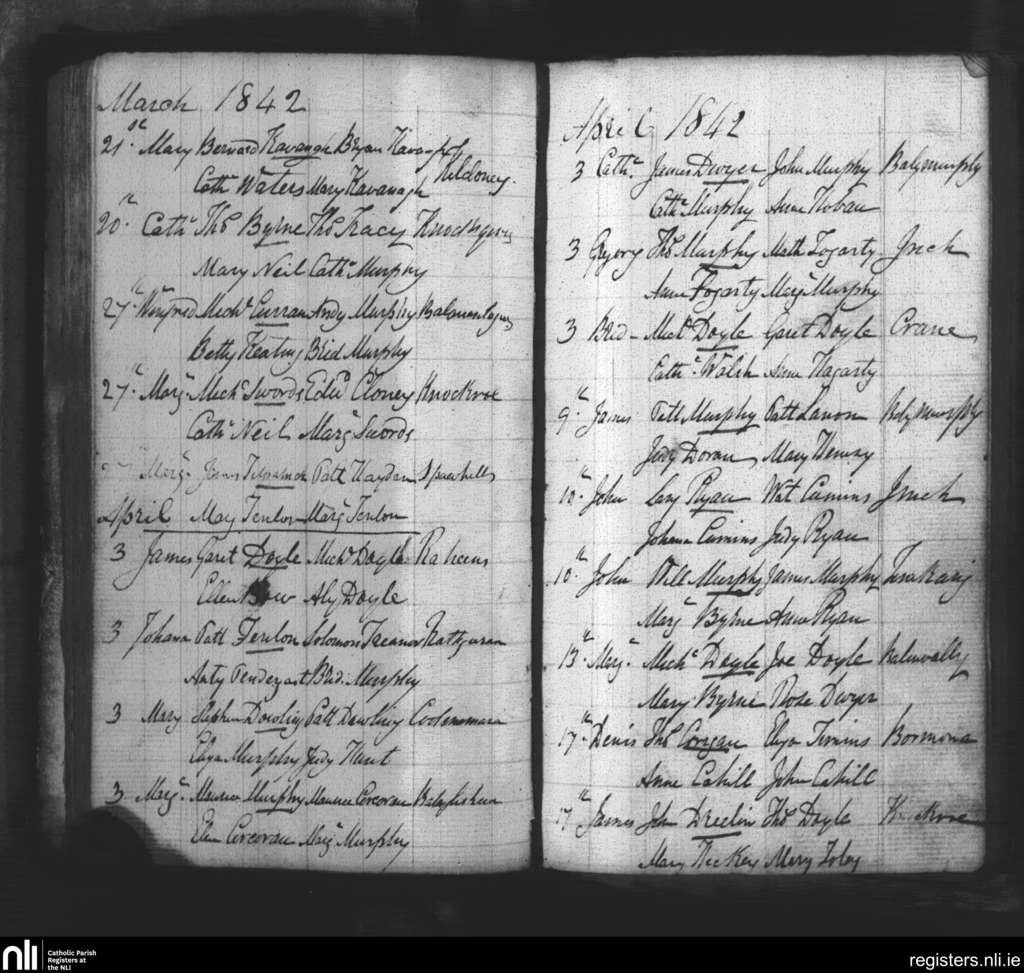 March 1842
21st Mary Bernard Kavangh Bryan Kavagh Kildoney.
Cath. Waters Mary Kavanagh
20th Cath Thos Byrne Thos Tracy
Mary Neil Cathe Murphy
27th Winfred Michl Curran Andy Murphy
Betty Keating Brid Murphy
27th Margt Mich Swords Edwd Cloney Knockroe
Cathe Neil Margt Swords
Margt James Patt Haydan
April May Fenlon Margt Fenlon
3 James Garet Doyle Michl Doyle Raheens
Ellen Aly Doyle
3 Johana Patt Fenlon Solomon
Anty Pendergast Brid. Murphy
3 Mary Stephen Dowling Patt Dowling Coolenamara
Eliza Murphy Judy Hunt
3 Margt Maurice Murphy Maurice Corcoran
Ellen Corcoran Margt Murphy
April 1842
3 Cathe James Dwyer John Murphy Balymurphy
Cathe Murphy Anne Hoban
3 Gregory Thos Murphy Math Fogarty Inch
Anne Fogarty Margt Murphy
3 Brid Doyle Garet Doyle Crane
Cathe Walsh Anne Hagarty
9th James Patt Murphy Patt Lanon Balymurphy
Judy Doran Mary
10th John Ryan Wat Cumins Inch
Johana Cumins Judy Ryan
10th John Will Murphy James Murphy
Marg Byrne Anne Ryan
13th Margt Mich Doyle Joe Doyle
Mary Byrne Rose Dwyer
17th Denis Thos Corgan Eliza Timins Bormona
Anne Cahill John Cahill
17th James John Dreelin Thos Doyle
Mary Hickey Mary Foley
nli
Catholic Parish
Registers at
the NLI
registers.nli.ie